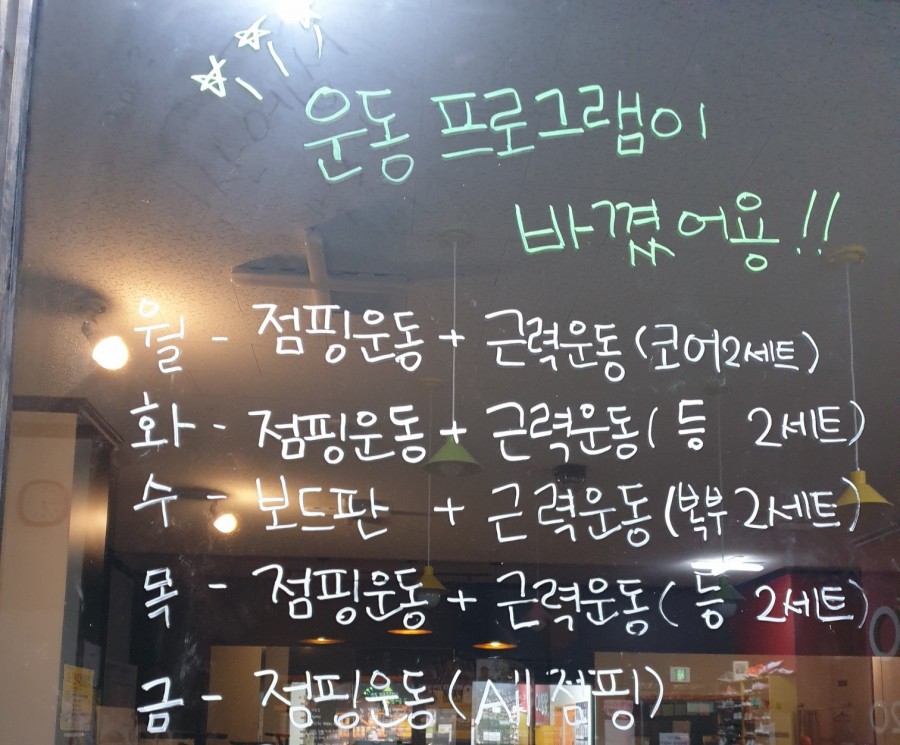 운동 프로그램이
바꼈어용!!
월 - 점핑운동 + 근력운동 (코어2세트)
화 - 점핑운동 + 근력운동 ( 등 2세트)
수 - 보드판 + 근력운동 (복부 2세트)
목 - 점핑운동 + 근력운동 ( 등 2세트)
금 - 점핑운동 (All 점핑)